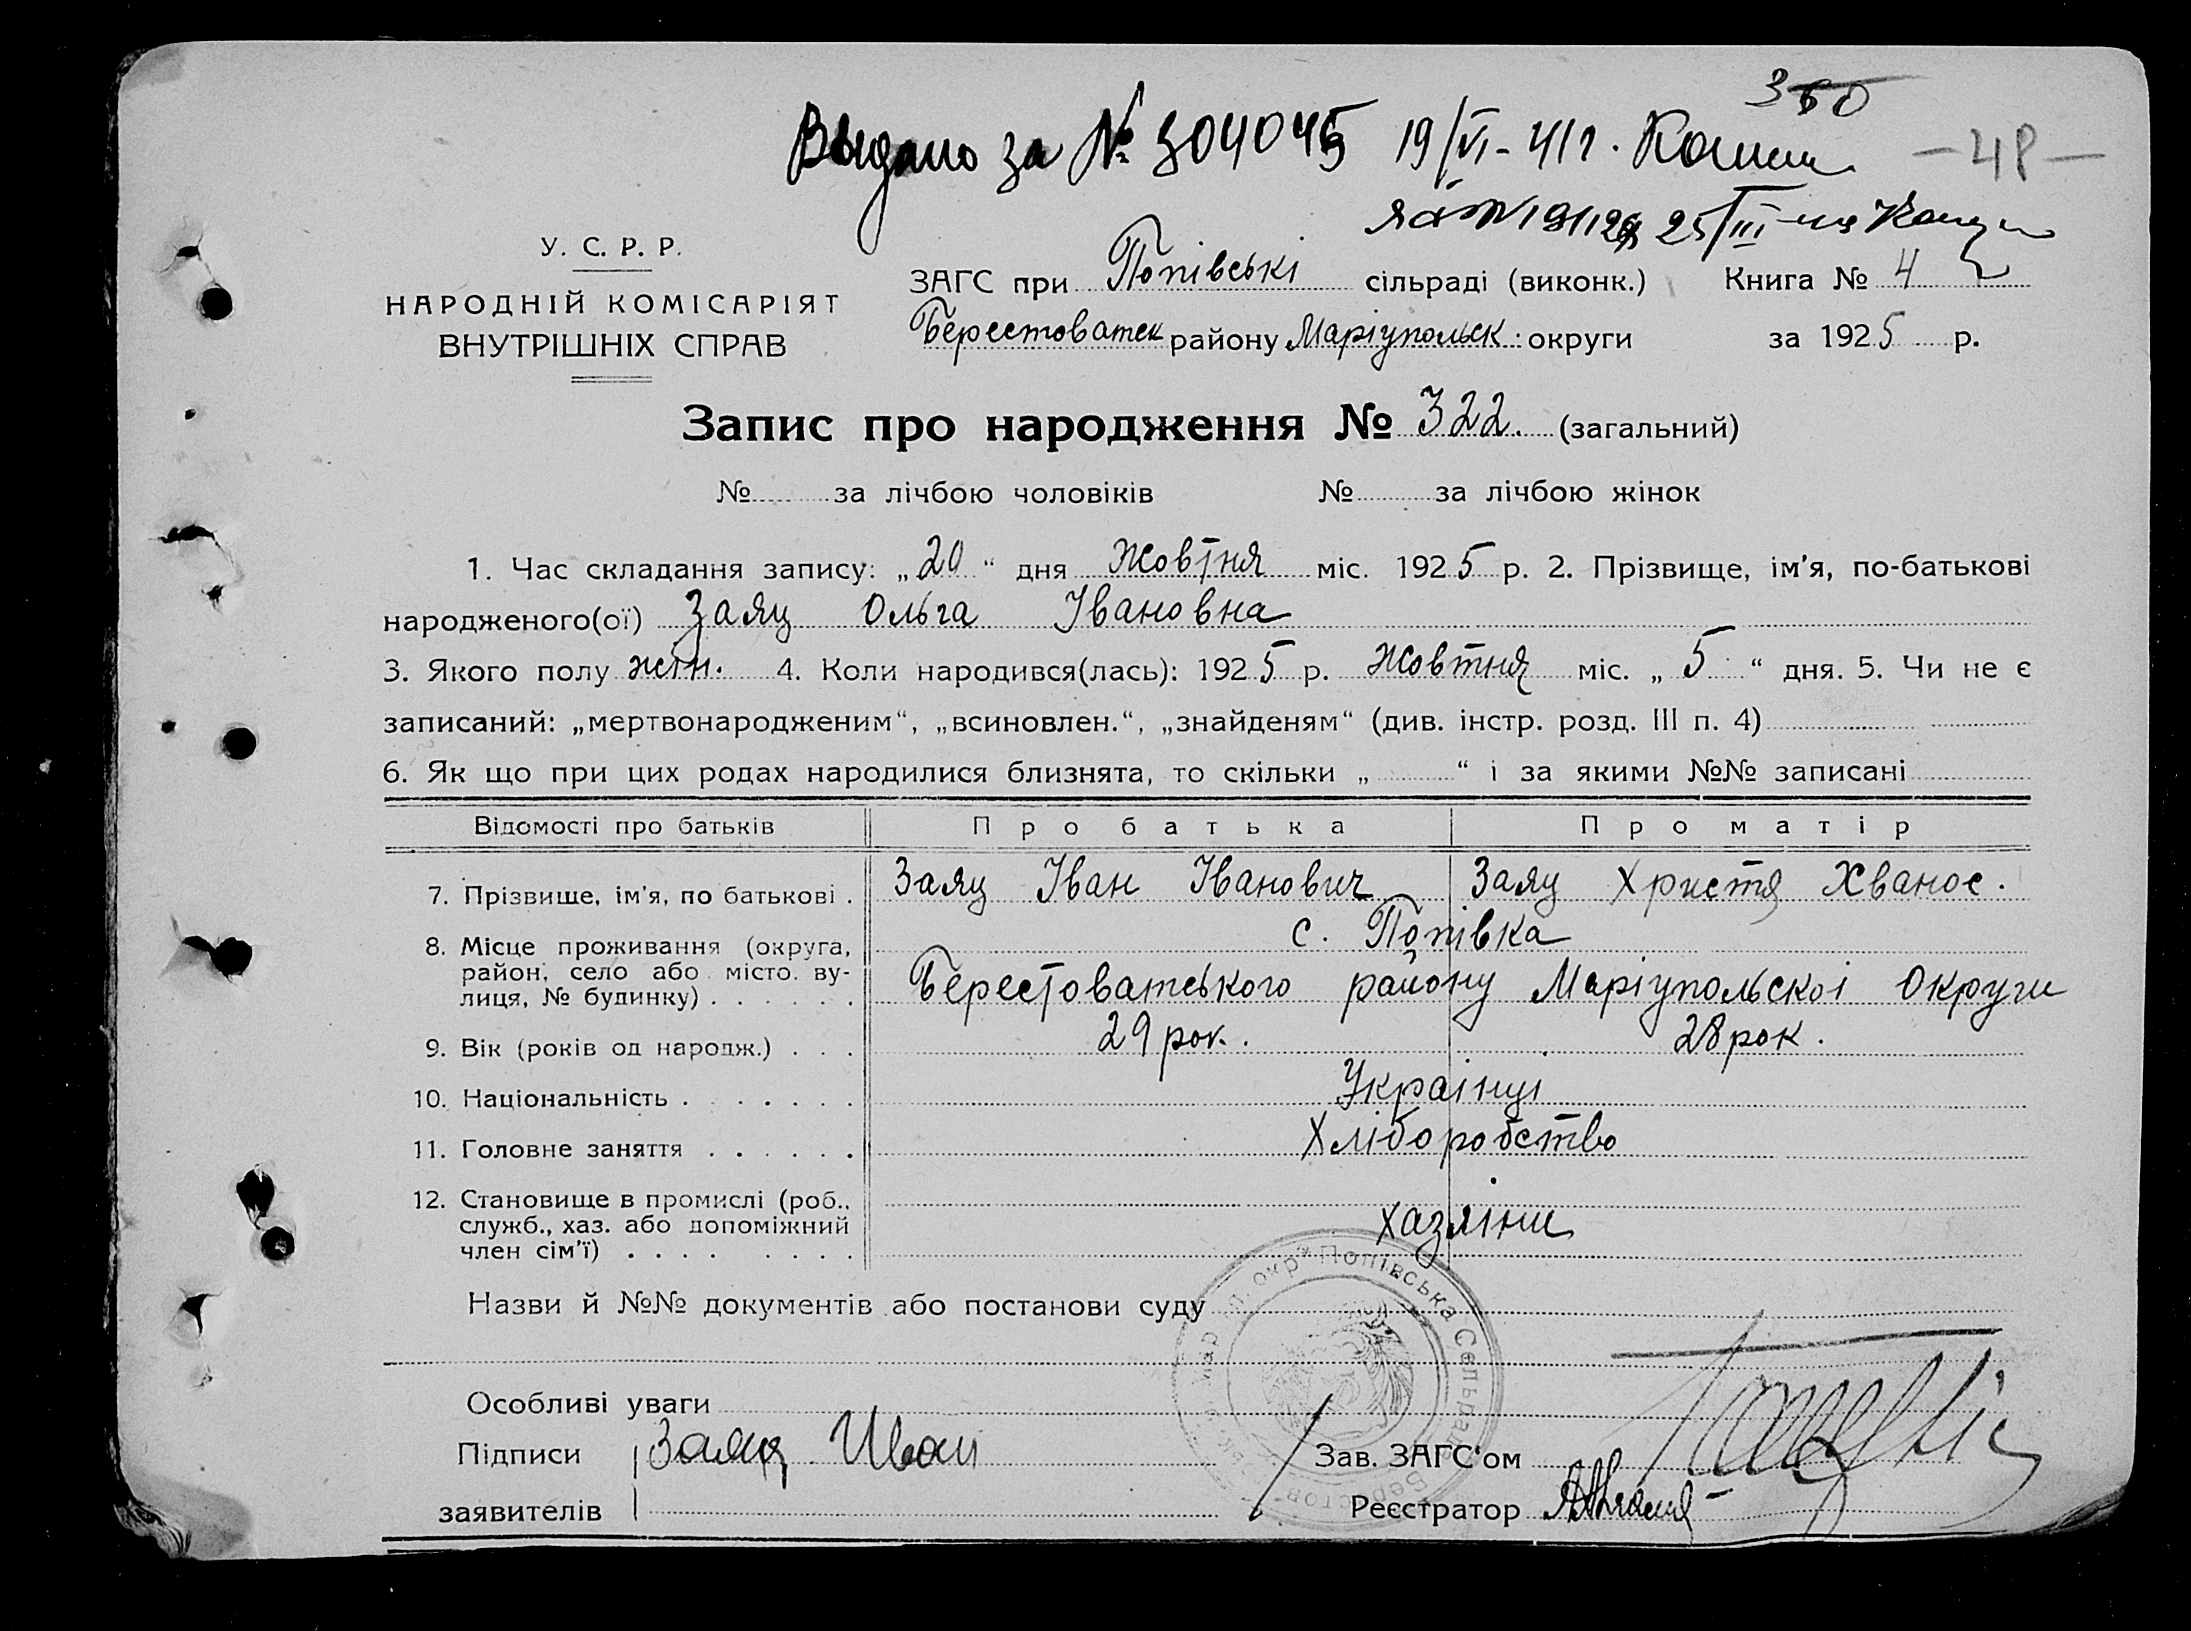 360
Выдано за № 304045 19/VI-41г.
-48-
25/III
У. С. Р. Р.
НАРОДНІЙ КОМІСАРІЯТ
ВНУТРІШНІХ СПРАВ
ЗАГС при Попівські сільраді (виконк.) Книга № 4
Берестоватск району Маріупольск. округи за 1925 р.
Запис про народження № 322. (загальний)
№ за лічбою чоловіків № за лічбою жінок
1. Час складання запису: „20“ дня Жовтня міс. 1925 р. 2. Прізвище, ім'я, по-батькові
народженого(ої) Заяц Ольга Івановна
3. Якого полу жін. 4. Коли народився(лась): 1925 р. Жовтня міс. „5“ дня. 5. Чи не є
записаний: „мертвонародженим“, „всиновлен.“, „знайденям“ (див. інстр. розд. III п. 4)
6. Як що при цих родах народилися близнята, то скільки „ “ і за якими №№ записані
Відомості про батьків Про батька Про матір
7. Прізвише, ім'я, по батькові . Заяц Іван Іванович Заяц Христя Хванос.
с. Попівка
8. Місце проживання (округа,
район, село або місто. ву-
лиця, № будинку) . . . . . . Берестоватського району Маріупольскоі Округи
9. Вік (років од народж.) . . . 29 рок. 28 рок.
10. Національність . . . . . . . Украінці
11. Головне заняття . . . . . . Хліборобство
12. Становище в промислі (роб.,
служб., хаз. або допоміжний
член сім'ї) . . . . . . . . . Хазяіни
Назви й №№ документів або постанови суду
окр. Попівська Сельрада Берестов
Особливі уваги
Підписи Заяц Иван Зав. ЗАГС'ом
заявителів Реєстратор